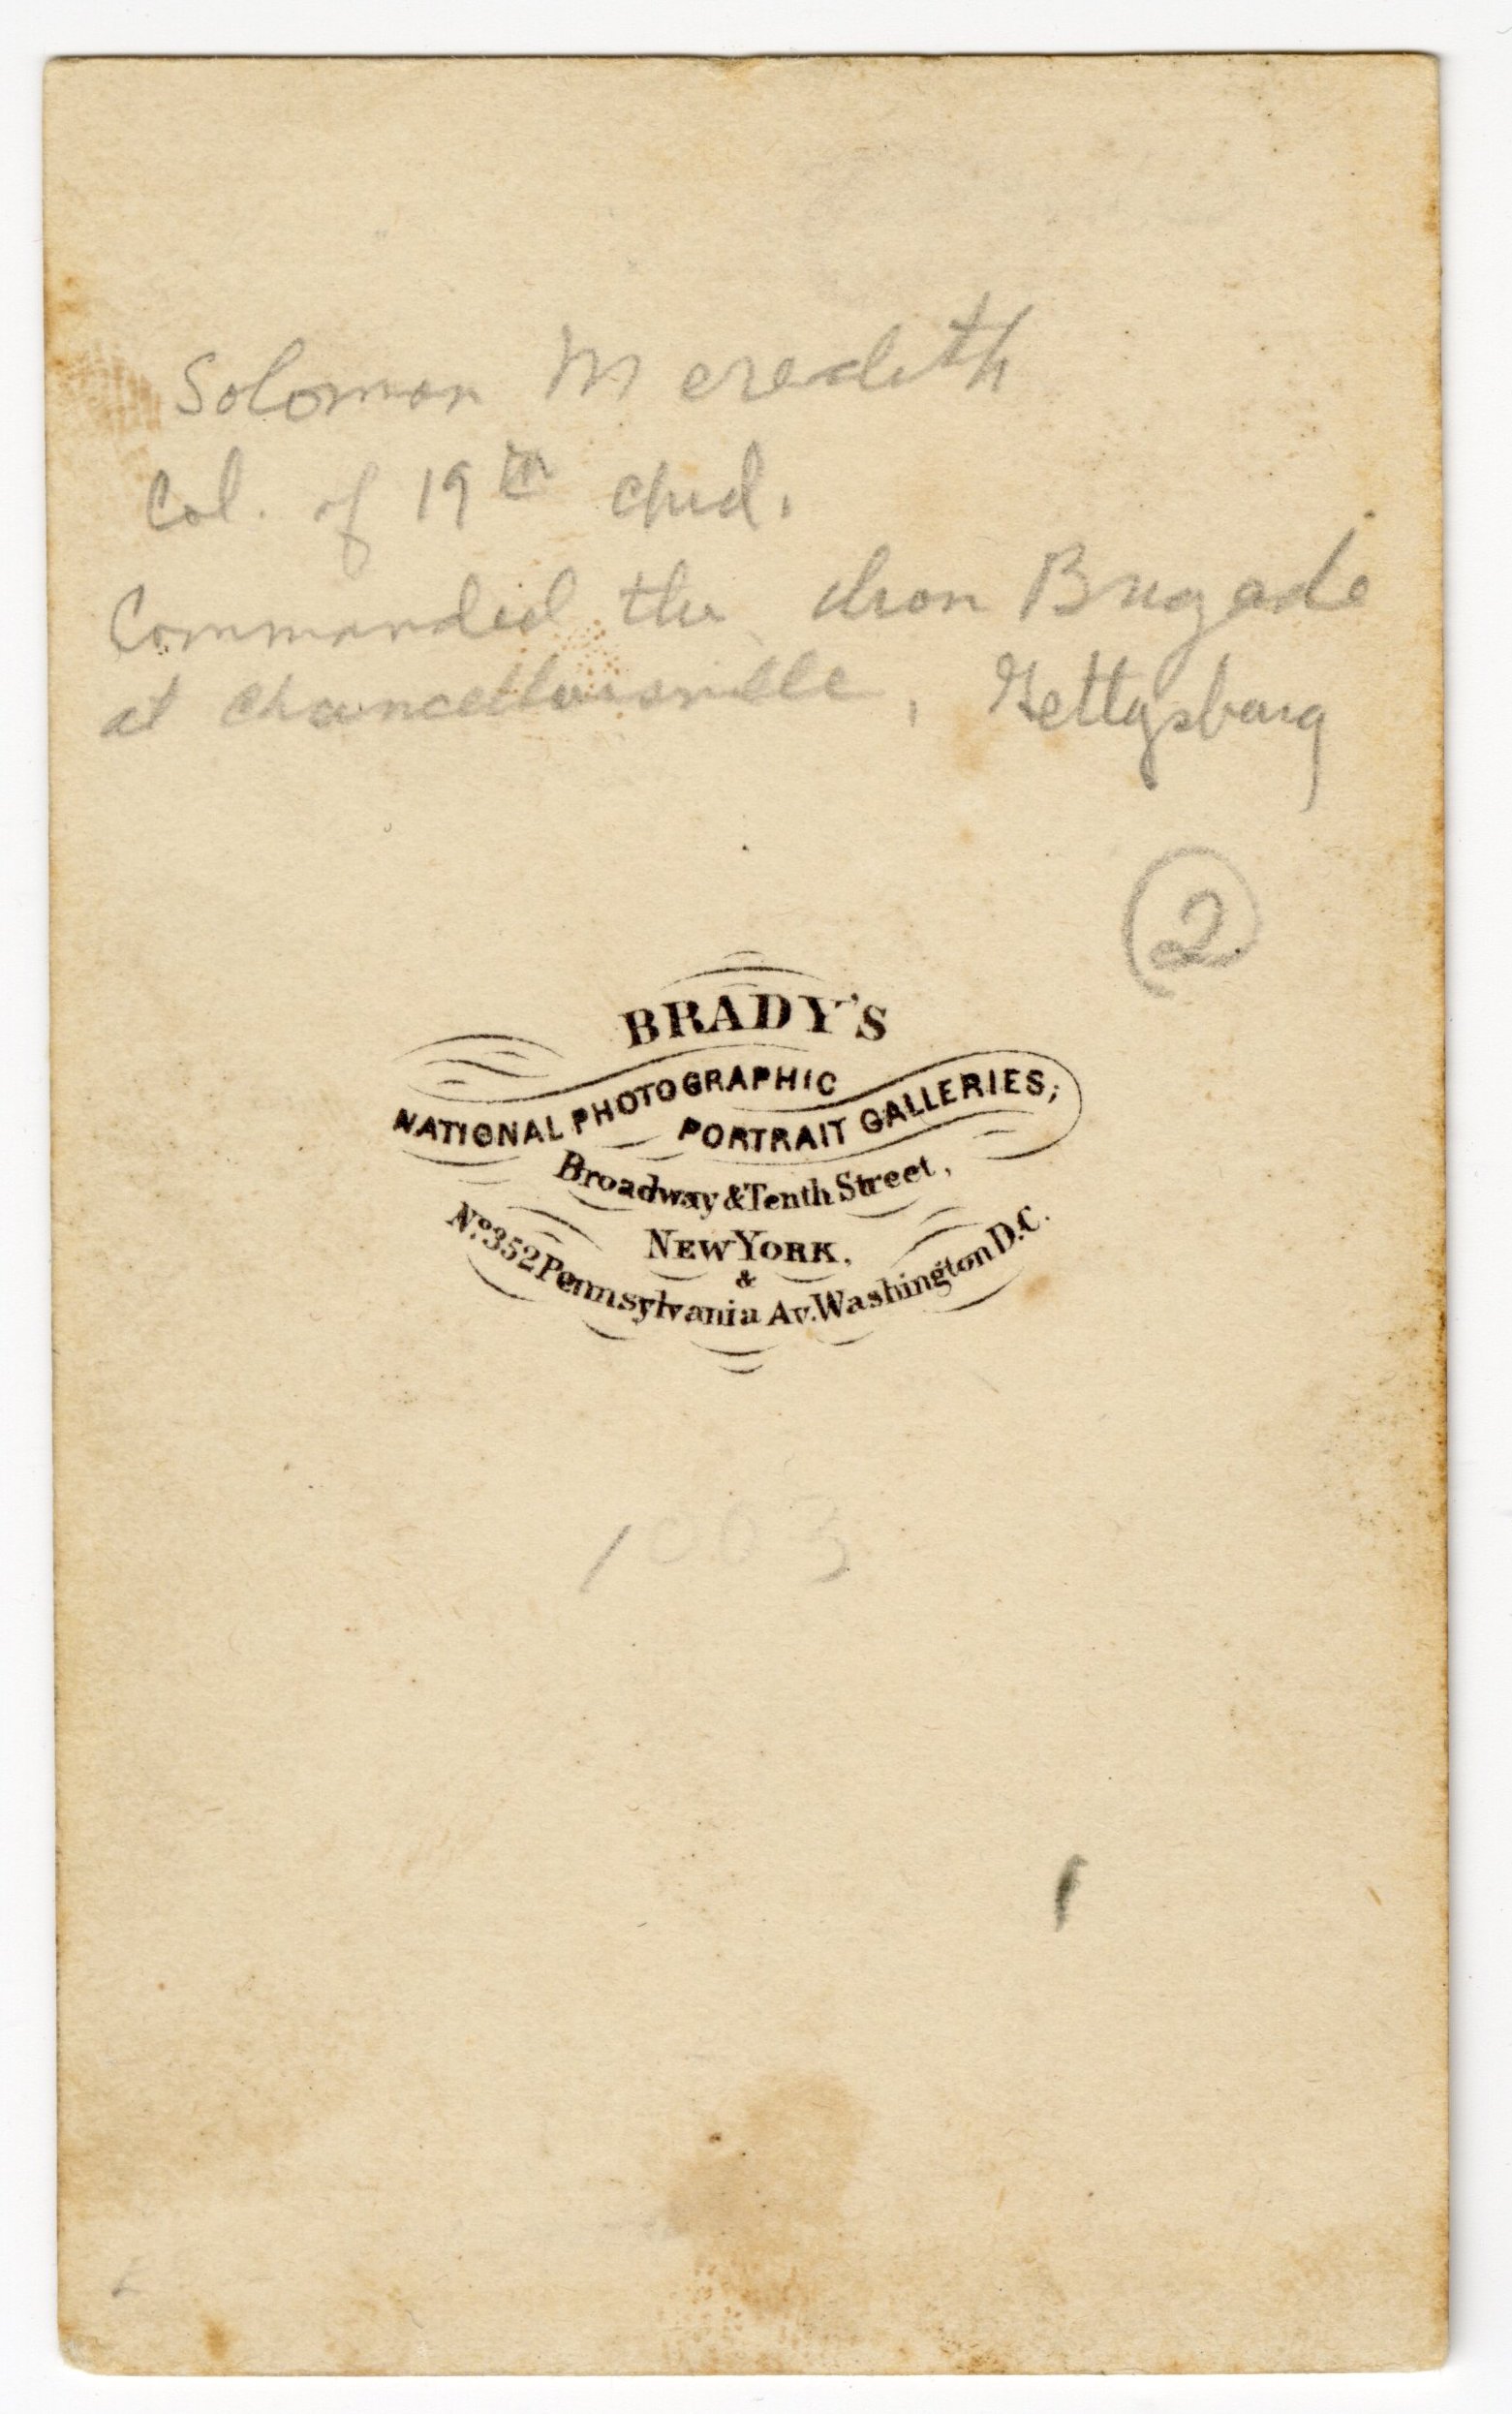 Solomon Meredith
Col. of 19th Ind.
Commanded the Iron Brigade
at Chancellorsville, Gettysburg
2
BRADY'S
NATIONAL PHOTOGRAPHIC
PORTRAIT GALLERIES,
Broadway & Tenth Street,
NEW YORK,
&
No. 352 Pennsylvania Av. Washington D.C.
1003